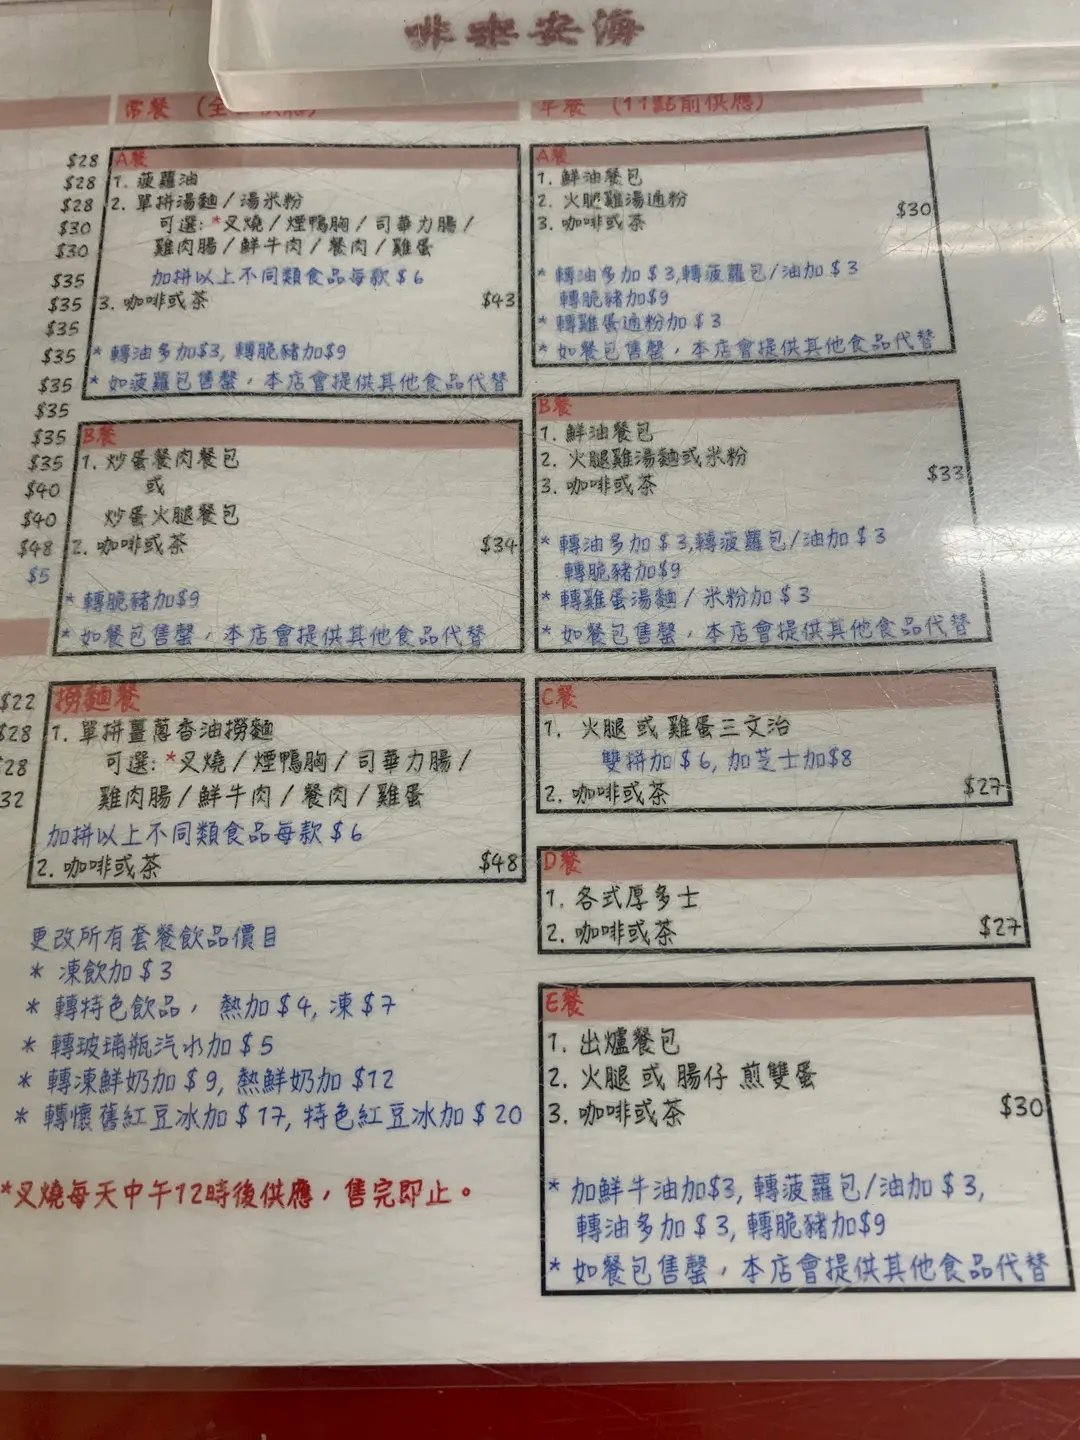 海安咖啡
常餐
$28
$28
$28
$30
$30
$35
$35
$35
$35
$35
$35
$35
$35
$40
$40
$48
$5
$22
$28
28
32
A餐
1. 菠蘿油
2. 單拼湯麵 / 湯米粉
可選: *叉燒 / 煙鴨胸 / 司華力腸 /
雞肉腸 / 鮮牛肉 / 餐肉 / 雞蛋
加拼以上不同類食品每款 $6
3. 咖啡或茶 $43
* 轉油多加$3, 轉脆豬加$9
* 如菠蘿包售罄，本店會提供其他食品代替
B餐
1. 炒蛋餐肉餐包
或
炒蛋火腿餐包
2. 咖啡或茶 $34
* 轉脆豬加$9
* 如餐包售罄，本店會提供其他食品代替
撈麵餐
1. 單拼薑蔥香油撈麵
可選: *叉燒 / 煙鴨胸 / 司華力腸 /
雞肉腸 / 鮮牛肉 / 餐肉 / 雞蛋
加拼以上不同類食品每款 $6
2. 咖啡或茶 $48
更改所有套餐飲品價目
* 凍飲加 $3
* 轉特色飲品， 熱加 $4, 凍 $7
* 轉玻璃瓶汽水加 $5
* 轉凍鮮奶加 $9, 熱鮮奶加 $12
* 轉懷舊紅豆冰加 $17, 特色紅豆冰加 $20
*叉燒每天中午12時後供應，售完即止。
早餐 (11點前供應)
A餐
1. 鮮油餐包
2. 火腿雞湯通粉
3. 咖啡或茶 $30
* 轉油多加 $3,轉菠蘿包/油加 $3
轉脆豬加$9
* 轉雞蛋通粉加 $3
* 如餐包售罄，本店會提供其他食品代替
B餐
1. 鮮油餐包
2. 火腿雞湯麵或米粉
3. 咖啡或茶 $33
* 轉油多加 $3,轉菠蘿包/油加 $3
轉脆豬加$9
* 轉雞蛋湯麵 / 米粉加 $3
* 如餐包售罄，本店會提供其他食品代替
C餐
1. 火腿 或 雞蛋三文治
雙拼加 $6, 加芝士加$8
2. 咖啡或茶 $27
D餐
1. 各式厚多士
2. 咖啡或茶 $27
E餐
1. 出爐餐包
2. 火腿 或 腸仔 煎雙蛋
3. 咖啡或茶 $30
* 加鮮牛油加$3, 轉菠蘿包/油加 $3,
轉油多加 $3, 轉脆豬加$9
* 如餐包售罄，本店會提供其他食品代替